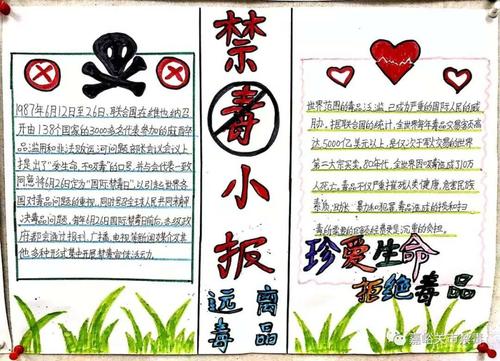 1987年6月12日至26日、联合国在维也纳召
开由138个国家的3000名代表参加的麻醉
品滥用和非法贩运问题部长会议会议上
提出了“爱生命,不吸毒”的口号,并与会代表一致
同意将6月26日定为“国际禁毒日”,以引起世界各
国对毒品问题的重视,同时号召全球人民共同来解
决毒品问题,每年6月26日国际禁毒日前后,各级政
府都会通过报刊、广播、电视等新闻媒介及其
他多种形式集中开展禁毒宣传活动.
禁
毒
小
报
远离
毒品
世界范围的毒品泛滥,已成为严重的国际人民的威
据联合国的统计,全世界每年毒品交易额高
达5000亿美元以上,是仅次于军火交易的世界
第二大宗买卖.80年代,全世界因吸毒造成了10万
人死亡,毒品不仅严重摧残人类健康,危害民族
素质,助长暴力和犯罪,毒品造成的
沉重的负担.
珍爱生命
拒绝毒品
嘉峪关市